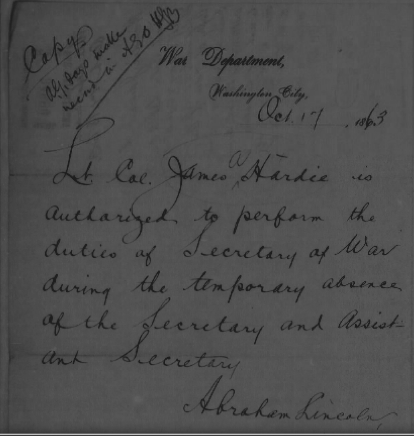 Copy
War Department,
Washington City,
Oct. 17, 1863
Lt Col. James A. Hardie is
authorized to perform the
duties of Secretary of War
during the temporary absence
of the Secretary and Assist-
ant Secretary
Abraham Lincoln,